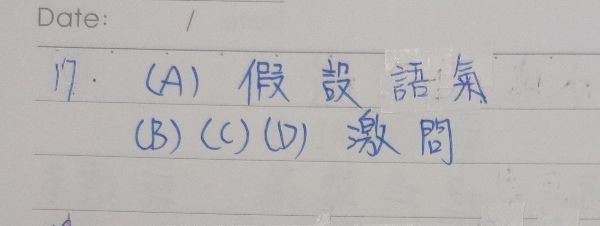 Date: /
17. (A) 假設語氣
(B)(C)(D) 激問